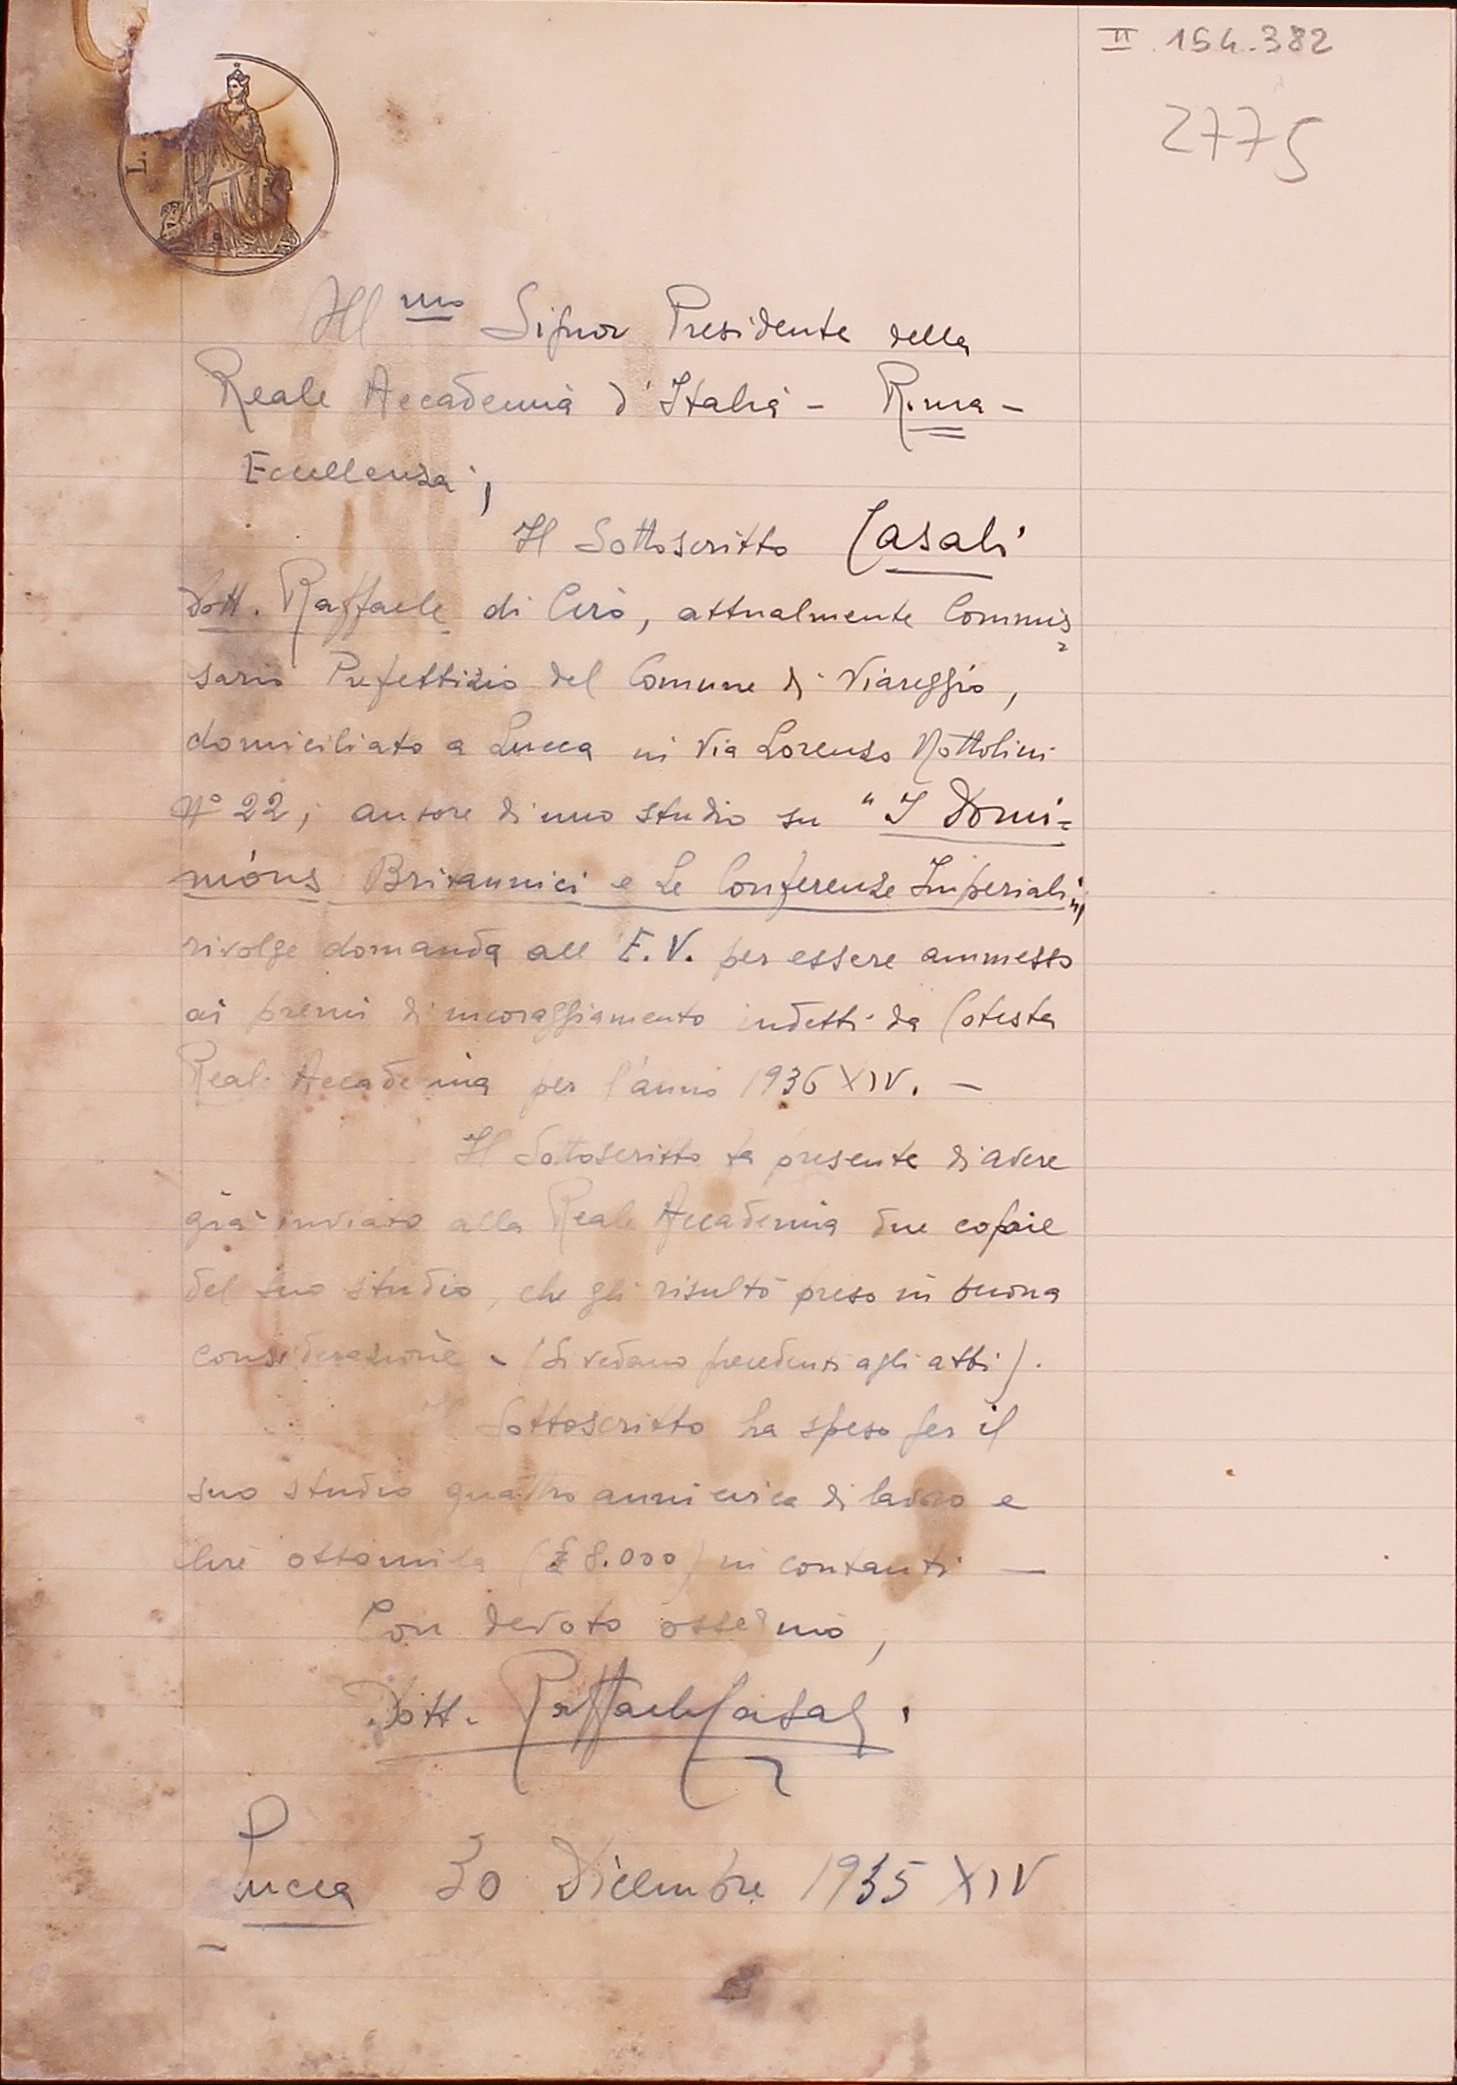 II. 154.382
2775
L.
Ill mo Signor Presidente della
Reale Accademia d'Italia - Roma -
Eccellenza,
Il Sottoscritto Casali
Dott. Raffaele di Ciro, attualmente Commis=
sario Prefettizio del Comune di Viareggio,
domiciliato a Lucca in Via Lorenzo Nottolini
N° 22, autore di uno studio su "I Domi=
nions Britannici e Le Conferenze Imperiali",
rivolge domanda all E. V. per essere ammesso
ai premi di incoraggiamento indetti da Cotesta
Reale Accademia per l'anno 1936 XIV. -
Il Sottoscritto fa presente di avere
già inviato alla Reale Accademia due copie
del suo studio, che gli risultò preso in buona
considerazione - (Si vedano precedenti agli atti).
Il Sottoscritto ha speso per il
suo studio quattro anni circa di lavoro e
lire ottomila (£ 8.000) in contanti -
Con devoto ossequio,
Dott. Raffaele Casali.
Lucca 30 Dicembre 1935 XIV